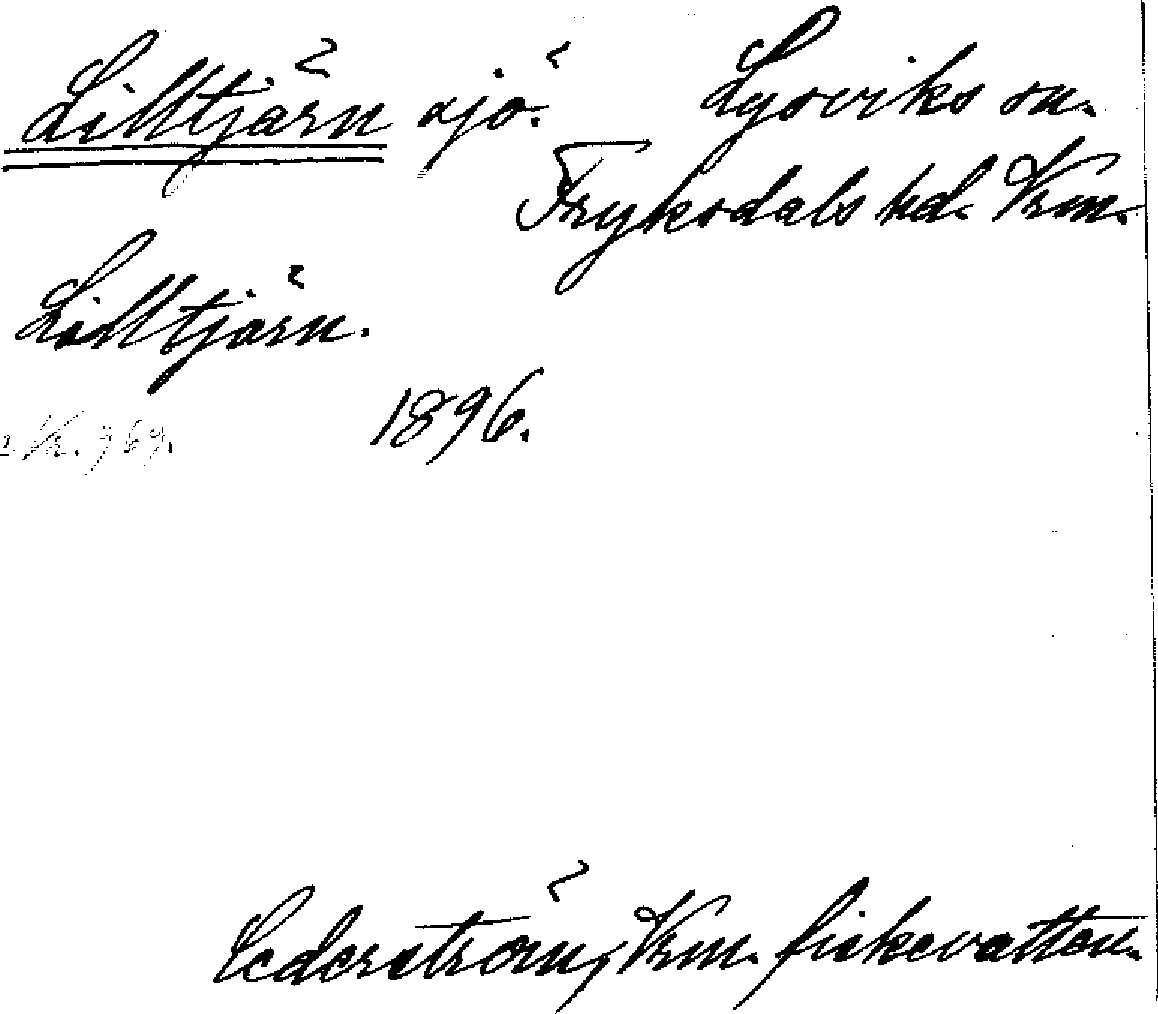 Lilltjärn sjö. Lysviks sn.
Fryksdals hd. Vrm.
Lilltjärn.
1896.
Cederström, Vrm. fiskevatten.